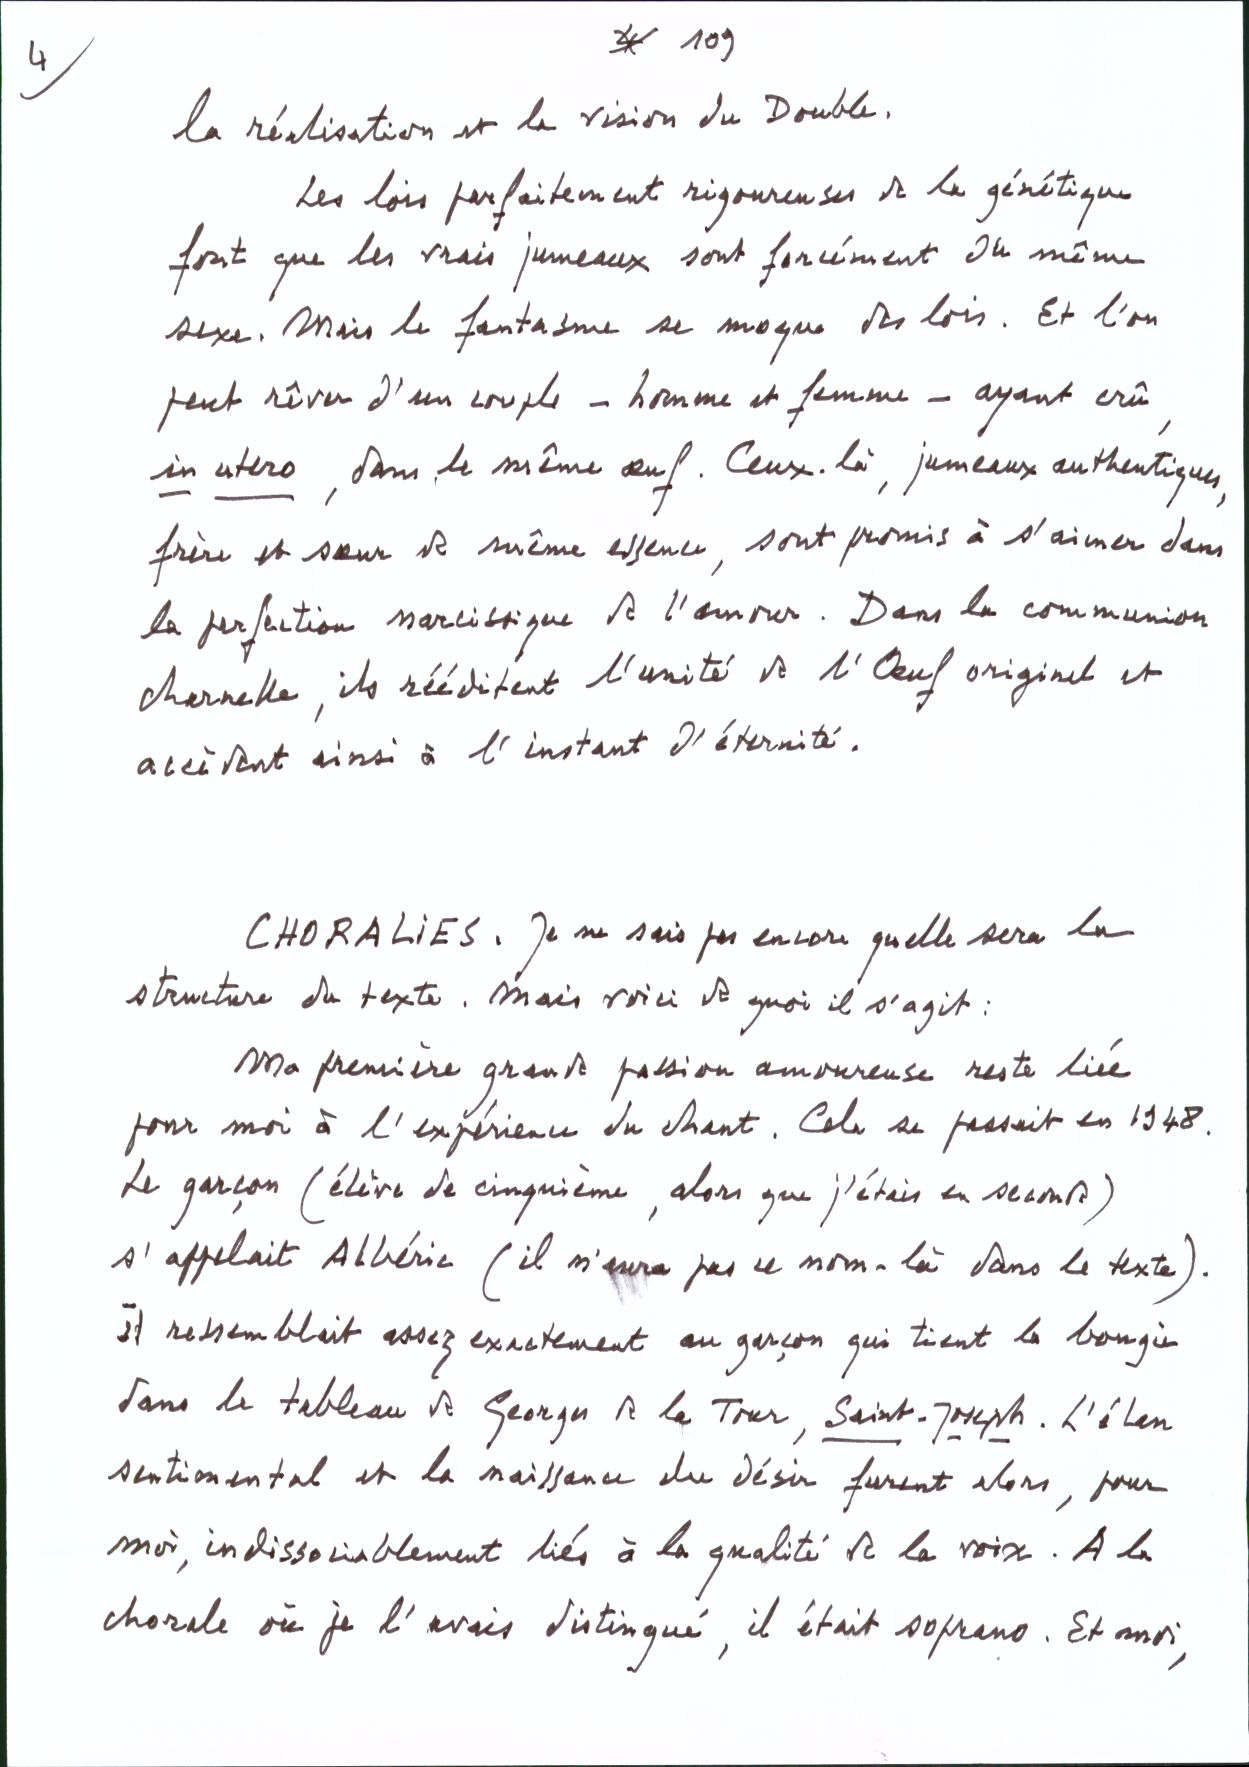 4
109
la réalisation et la vision du Double.
Les lois parfaitement rigoureuses de la génétique
font que les vrais jumeaux sont forcément du même
sexe. Mais le fantasme se moque des lois. Et l'on
peut rêver d'un couple - homme et femme - ayant crû,
in utero, dans le même œuf. Ceux-là, jumeaux authentiques,
frère et sœur de même essence, sont promis à s'aimer dans
la perfection narcissique de l'amour. Dans la communion
charnelle, ils rééditent l'unité de l'Œuf originel et
accèdent ainsi à l'instant d'éternité.
CHORALIES. Je ne sais pas encore quelle sera la
structure du texte. Mais voici de quoi il s'agit :
Ma première grande passion amoureuse reste liée
pour moi à l'expérience du chant. Cela se passait en 1948.
Le garçon (élève de cinquième, alors que j'étais en seconde)
s'appelait Albéric (il n'aura pas ce nom-là dans le texte).
Il ressemblait assez exactement au garçon qui tient la bougie
dans le tableau de Georges de la Tour, Saint-Joseph. L'élan
sentimental et la naissance du désir furent alors, pour
moi, indissociablement liés à la qualité de la voix. A la
chorale où je l'avais distingué, il était soprano. Et moi,